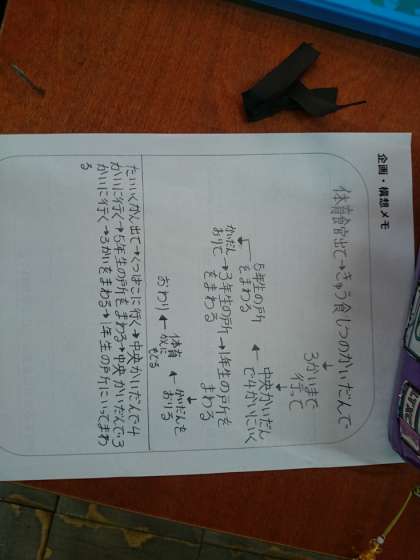 企画・構想メモ
体育館出て→きゅう食しつのかいだんで
↓
3かいまで
行って
↓
中央かいだん
で4かいにいく
←
5年生の戸所
をまわる
↓
かいだん→3年生の戸所→1年生の戸所を
おりて をまわる まわる
↓
かいだんを
おりる
←
体育
館に
もどる
←
おわり
たいいくかん出て→くつばこに行く→中央かいだんで4
かいに行く→5年生の戸所をまわる→中央かいだんで3
かいに行く→3かいをまわる→1年生の戸所にいってまわ
る